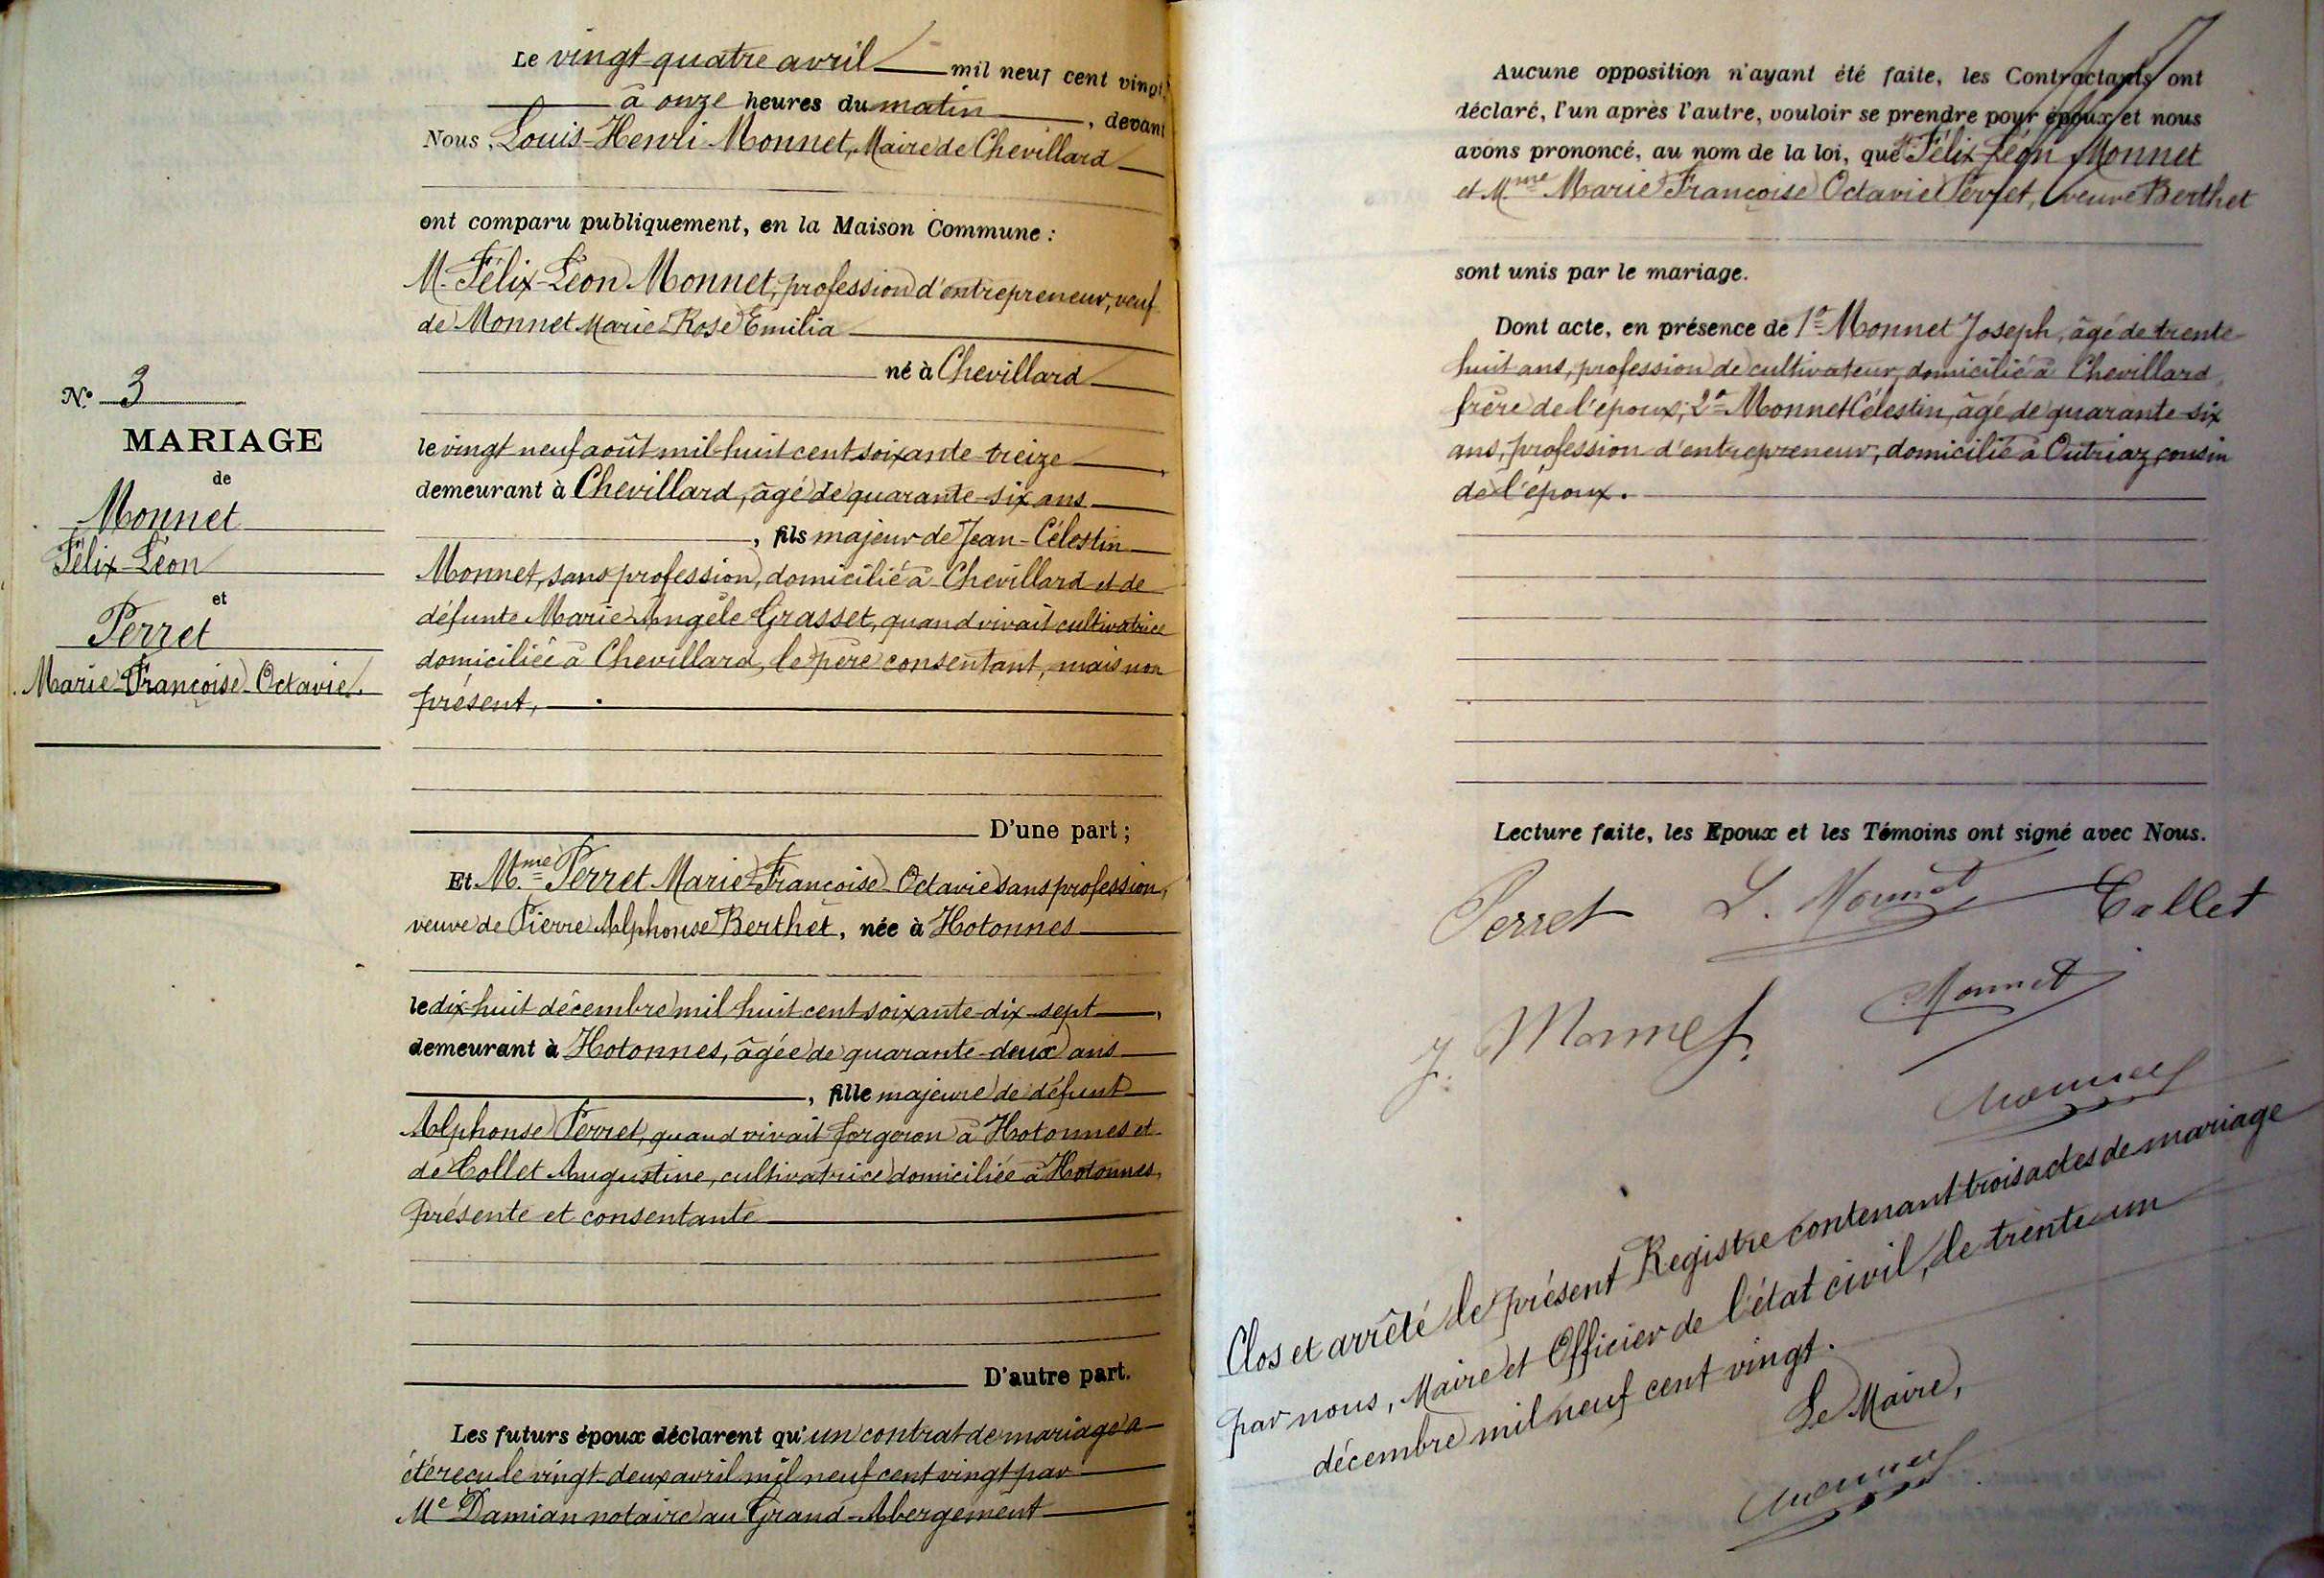 N.o 3
MARIAGE
de
Monnet
Félix-Léon
et
Perret
Marie-Françoise-Octavie.
Le vingt-quatre avril mil neuf cent vingt
à onze heures du matin, devant
Nous, Louis-Henri Monnet, Maire de Chevillard
ont comparu publiquement, en la Maison Commune :
M. Félix-Léon Monnet, profession d'entrepreneur, veuf
de Monnet Marie-Rose Emilia
né à Chevillard
le vingt neuf août mil huit cent soixante-treize,
demeurant à Chevillard, âgé de quarante-six ans
, fils majeur de Jean-Célestin
Monnet, sans profession, domicilié à Chevillard et de
défunte Marie Angèle Grasset, quand vivait cultivatrice
domiciliée à Chevillard, le père consentant, mais non
présent,
D'une part ;
Et M.me Perret Marie-Françoise-Octavie sans profession,
veuve de Pierre Alphonse Berthet, née à Hotonnes
le dix-huit décembre mil huit cent soixante-dix-sept,
demeurant à Hotonnes, âgée de quarante-deux ans
, fille majeure de défunt
Alphonse Perret, quand vivait forgeron à Hotonnes et
de Collet Augustine, cultivatrice domiciliée à Hotonnes,
présente et consentante
D'autre part.
Les futurs époux déclarent qu'un contrat de mariage a
été reçu le vingt-deux avril mil neuf cent vingt par
Me Damian notaire au Grand-Abergement
Aucune opposition n'ayant été faite, les Contractants ont
déclaré, l'un après l'autre, vouloir se prendre pour époux et nous
avons prononcé, au nom de la loi, que Félix-Léon Monnet
et M.me Marie Françoise Octavie Perret, veuve Berthet
sont unis par le mariage.
Dont acte, en présence de 1o Monnet Joseph, âgé de trente-
huit ans, profession de cultivateur, domicilié à Chevillard,
frère de l'époux; 2o Monnet Célestin, âgé de quarante-six
ans, profession d'entrepreneur, domicilié à Outriaz, cousin
de l'époux.
Lecture faite, les Epoux et les Témoins ont signé avec Nous.
Perret L. Monnet Collet
J. Monnet. Monnet
Monnet
Clos et arrêté le présent Registre contenant trois actes de mariage
par nous, Maire et Officier de l'état civil, le trente-un
décembre mil neuf cent vingt.
Le Maire,
Monnet